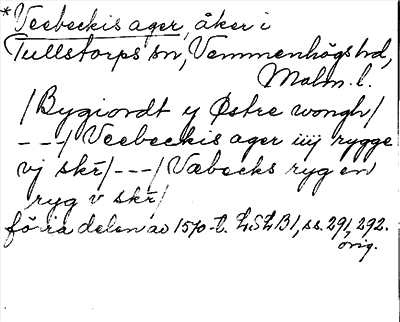 *Veebeckis ager, åker i
Tullstorps sn, Vemmenhögs hd,
Malm. l.
/Bygiordt y Østre wongh/
---/Veebeckis ager iiij rygge
vj skr̄/---/Væbecks ryg en
ryg v skr̄/
förra delen av 1570-t. LSLB1, ss. 291, 292.
orig.